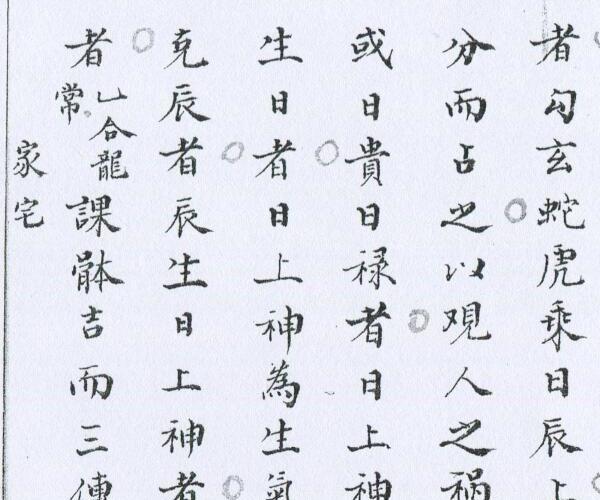 者勾玄蛇虎乗日辰上
分而占之以观人之禍
或日貴日禄者日上神
生日者日上神為生氣
克辰者辰生日上神者
者乙合龍常課骵吉而三傳
家宅